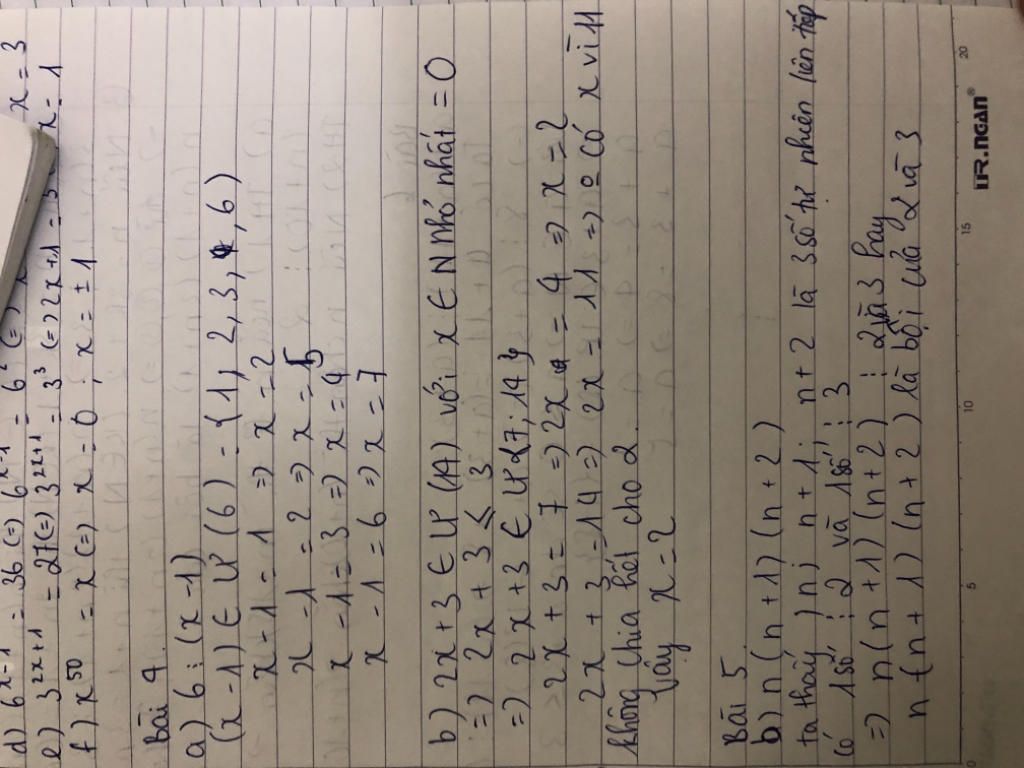 d) 6^x-1 = 36 (=) 6^x-1 = 6^2 (=) x = 3
e) 3^2x+1 = 27 (=) 3^2x+1 = 3^3 (=) 2x+1 = 3 x = 1
f) x^50 = x (=) x = 0 ; x = ± 1
Bài 4
a) 6 ⋮ (x -1)
(x -1) ∈ Ư (6) = {1, 2, 3, 6)
x - 1 = 1 => x = 2
x - 1 = 2 => x = 5
x - 1 = 3 => x = 4
x - 1 = 6 => x = 7
b) 2x + 3 ∈ Ư (14) với x ∈ N nhỏ nhất = 0
=> 2x + 3 ≤ 3
=> 2x + 3 ∈ Ư {7; 14}
2x + 3 = 7 => 2x = 4 => x = 2
2x + 3 = 14 => 2x = 11 => có x vì 11
không chia hết cho 2
Vậy x = 2
Bài 5
b) n (n + 1) (n + 2)
ta thấy n; n + 1; n + 2 là 3 số tự nhiên liên tiếp
có 1 số ⋮ 2 và 1 số ⋮ 3
=> n (n + 1) (n + 2) ⋮ 2 và 3 hay
n (n + 1) (n + 2) là bội của 2 và 3
0 5 10 15 20